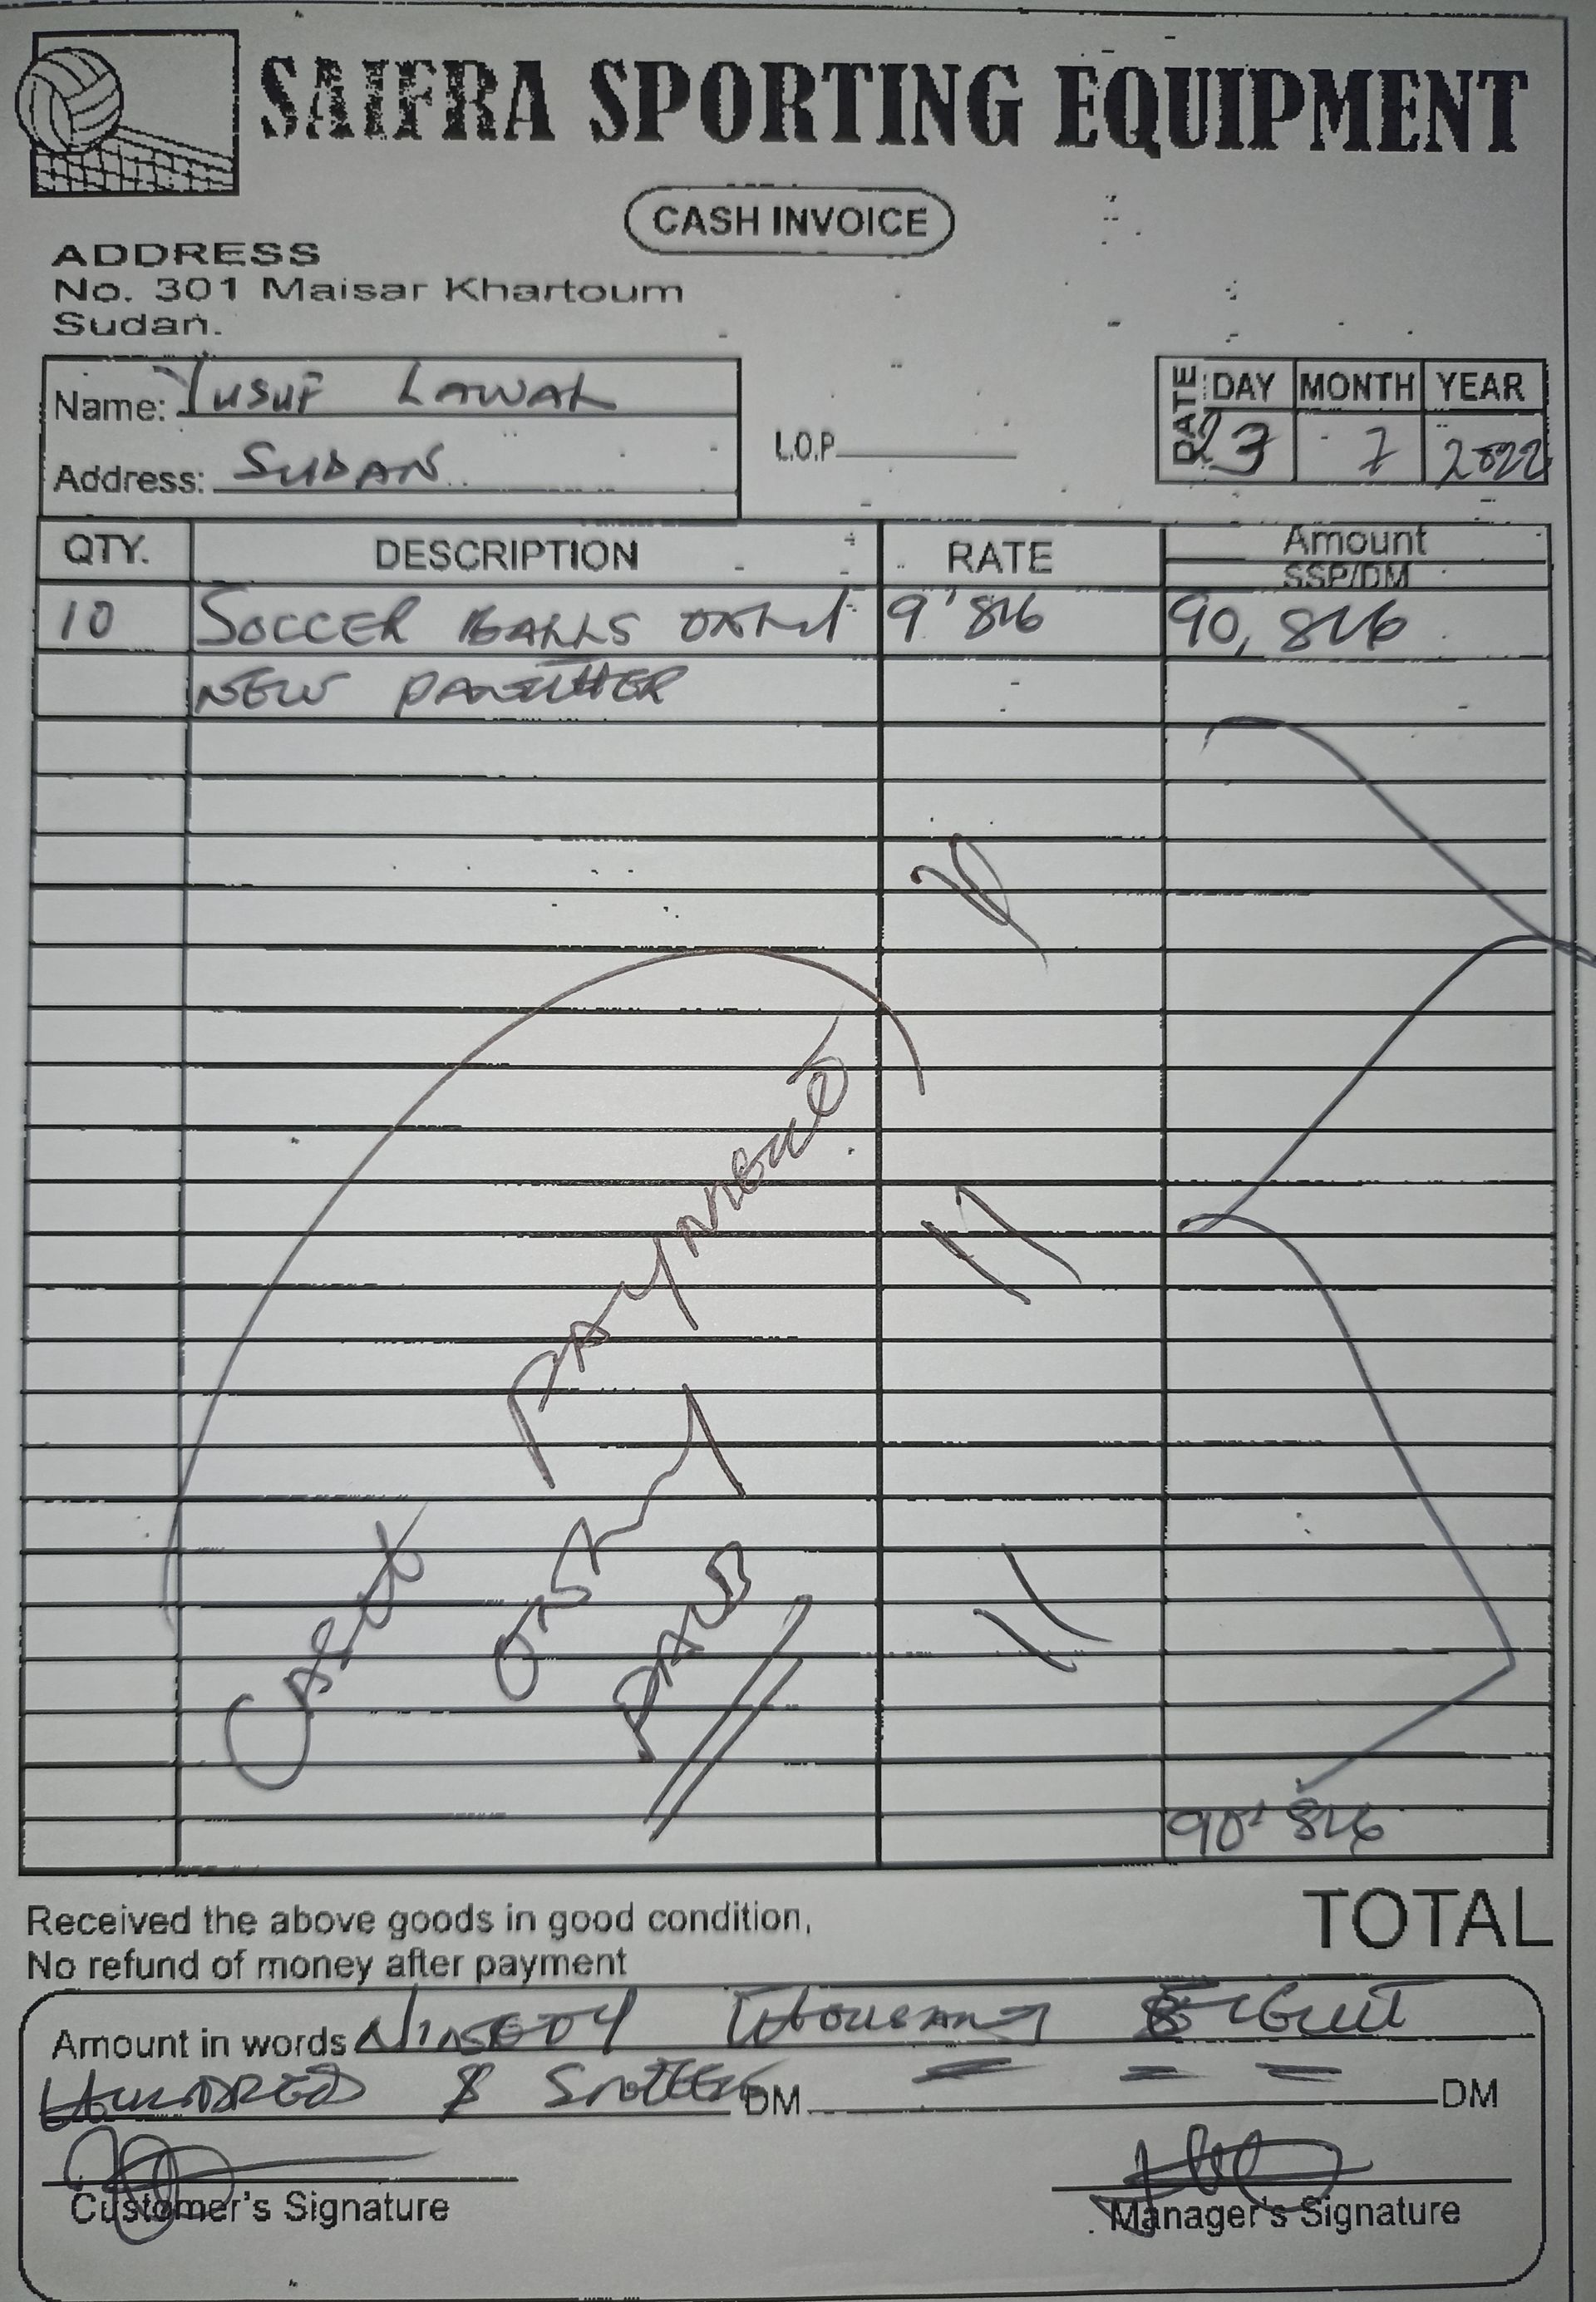 SAIFRA SPORTING EQUIPMENT
CASH INVOICE
ADDRESS
No. 301 Maisar Khartoum
Sudan.
Name: Yusuf LAWAL
Address: SUDAN
L.O.P
DATE DAY MONTH YEAR
23 7 2022
QTY. DESCRIPTION RATE Amount
SSP/DM
10 SOCCER BALLS 9'816 90,816
NEW PANTHER
CASH PAYMENT
ONLY
PAID
90'816
TOTAL
Received the above goods in good condition,
No refund of money after payment
Amount in words NINETY THOUSAND EIGHT
HUNDRED & SIXTEEN DM = = = DM
Customer's Signature
Manager's Signature